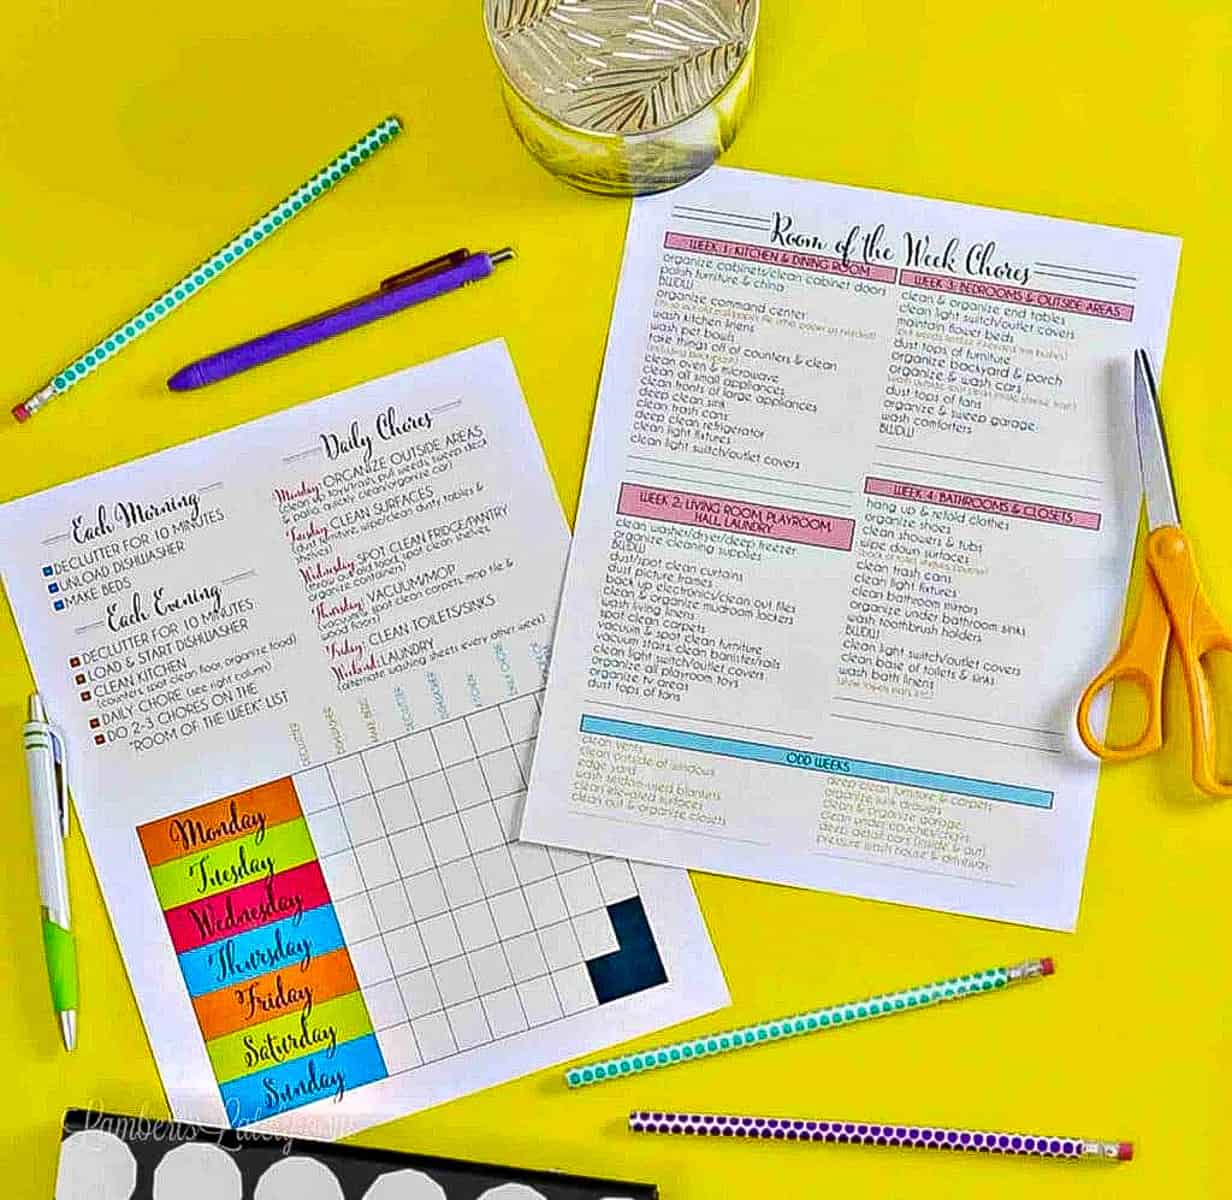 Each Morning
DECLUTTER FOR 10 MINUTES
UNLOAD DISHWASHER
MAKE BEDS
Each Evening
DECLUTTER FOR 10 MINUTES
LOAD & START DISHWASHER
CLEAN KITCHEN
(counters, spot clean floor, organize food)
DAILY CHORE (see right column)
DO 2-3 CHORES ON THE
"ROOM OF THE WEEK" LIST
Daily Chores
Monday: ORGANIZE OUTSIDE AREAS
& patio, quickly clean/organize car)
Tuesday: CLEAN SURFACES
(dust furniture, wipe/clean dusty tables &
shelves)
Wednesday: SPOT CLEAN FRIDGE/PANTRY
(throw out old food, spot clean shelves,
organize containers)
Thursday: VACUUM/MOP
(vacuum & spot clean carpets, mop tile &
wood floors)
Friday: CLEAN TOILETS/SINKS
Weekend: LAUNDRY
(alternate washing sheets every other week)
Monday
Tuesday
Wednesday
Thursday
Friday
Saturday
Sunday
Room of the Week Chores
WEEK 1: KITCHEN & DINING ROOM
organize cabinets/clean cabinet doors
polish furniture & china
BWDW
organize command center
wash kitchen linens
wash pet bowls
take things off of counters & clean
clean oven & microwave
clean all small appliances
clean fronts of large appliances
deep clean sink
clean trash cans
deep clean refrigerator
clean light fixtures
clean light switch/outlet covers
WEEK 2: LIVING ROOM, PLAYROOM,
HALL, LAUNDRY
clean washer/dryer/deep freezer
organize cleaning supplies
BWDW
dust/spot clean curtains
dust picture frames
back up electronics/clean out files
clean & organize mudroom lockers
wash living linens
spot clean carpets
vacuum & spot clean furniture
vacuum stairs, clean banister/rails
clean light switch/outlet covers
organize all playroom toys
organize tv areas
dust tops of fans
WEEK 3: BEDROOMS & OUTSIDE AREAS
clean & organize end tables
clean light switch/outlet covers
maintain flower beds
dust tops of furniture
organize backyard & porch
organize & wash cars
dust tops of fans
organize & sweep garage
wash comforters
BWDW
WEEK 4: BATHROOMS & CLOSETS
hang up & refold clothes
organize shoes
clean showers & tubs
wipe down surfaces
clean trash cans
clean light fixtures
clean bathroom mirrors
organize under bathroom sinks
wash toothbrush holders
BWDW
clean light switch/outlet covers
clean base of toilets & sinks
wash bath linens
ODD WEEKS
clean vents
clean outside of windows
edge yard
wash seldom-used blankets
clean little-used surfaces
clean out & organize closets
deep clean furniture & carpets
organize junk drawers
clean & organize garage
clean under appliances
deep detail cars (inside & out)
pressure wash house & driveway